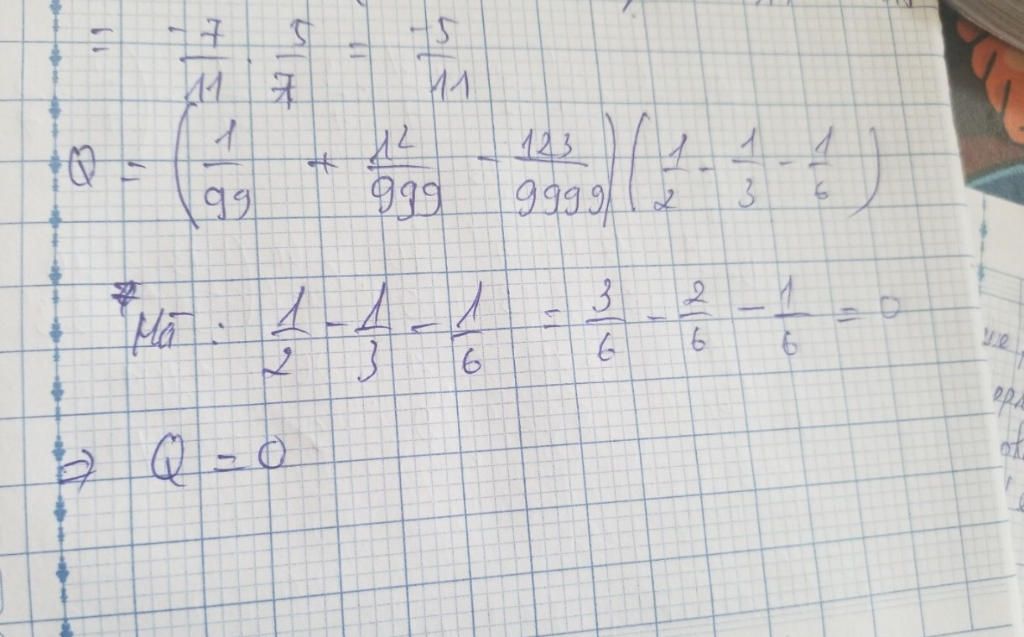 = -7/11 . 5/7 = -5/11
Q = (1/99 + 12/999 - 123/9999)(1/2 - 1/3 - 1/6)
Mà : 1/2 - 1/3 - 1/6 = 3/6 - 2/6 - 1/6 = 0
⇒ Q = 0